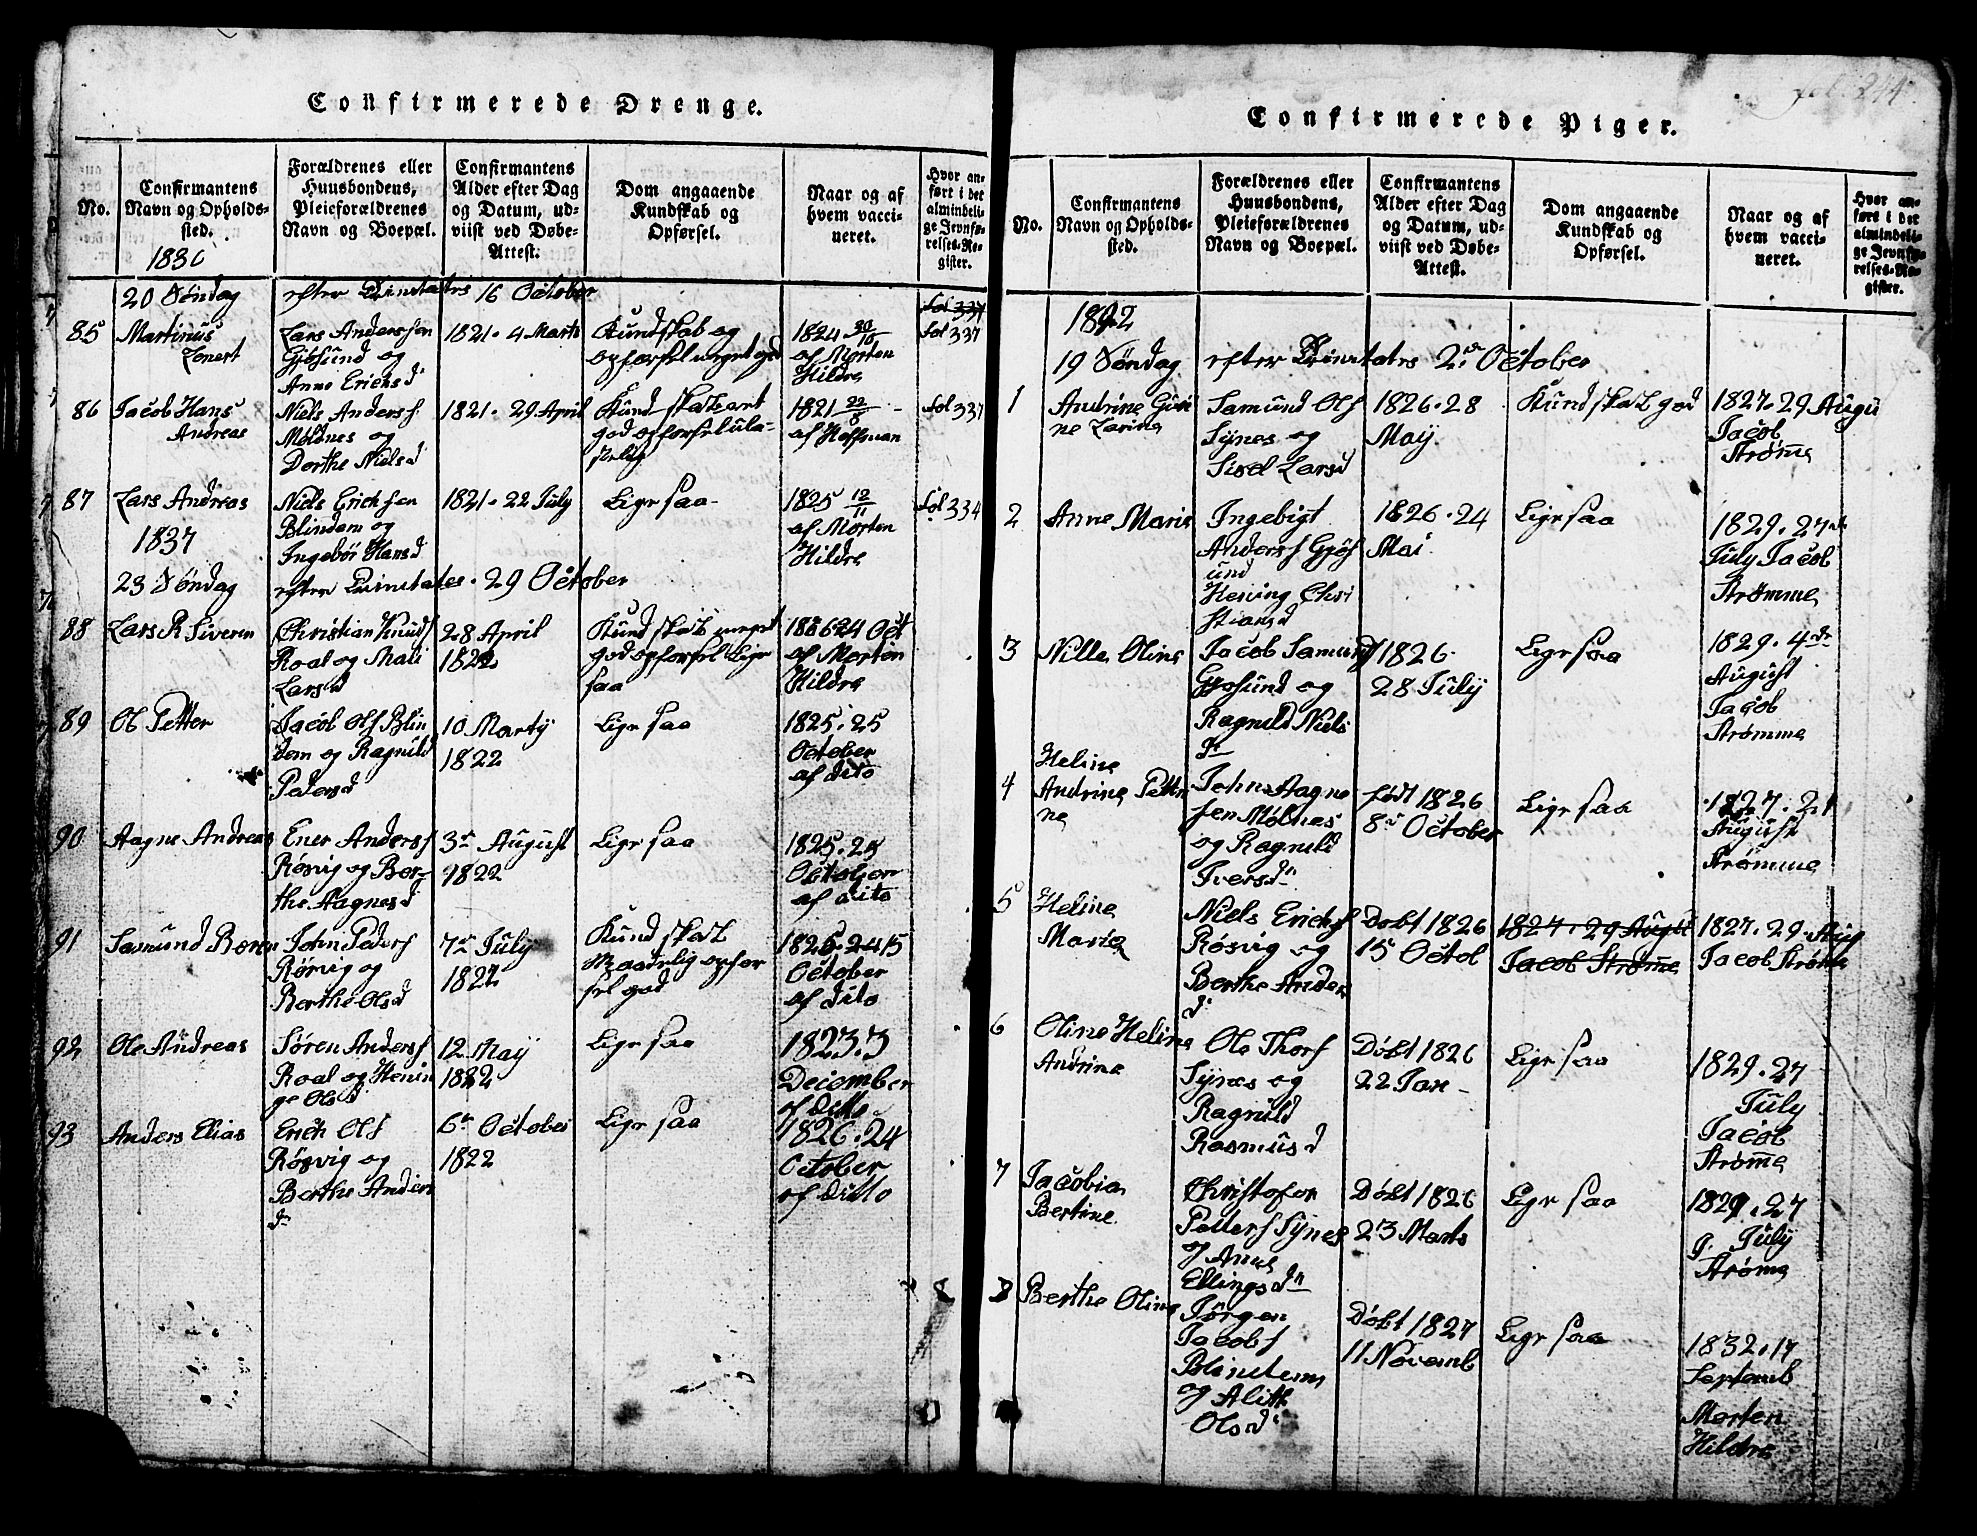 Confirmerede Drenge.
No.
Confirmantens
Navn og Opholds-
sted.
Forældrenes eller
Huusbondens,
Pleieforældrenes
Navn og Boepæl.
Confirmantens
Alder efter Dag
og Datum, ud-
viist ved Døbe-
Attest.
Dom angaaende
Kundskab og
Opførsel.
Naar og af
hvem vacci-
neret.
Hvor an-
ført i det
almindeli-
ge Jevnfø-
relses-Re-
gister.
20 Søndag efter Trinitates 16 October
fol 337
85
Martinus
Lenert
Lars Anderssen
Gjøsund og
Anne Ericksd
1821. 4 Marts
Kundskab og
opførsel meget god
1824 30/10
af Morten
Hildre
fol 337
86
Jacob Hans
Andreas
Niels Andersf
Moldnes og
Dorthe Nielsd
1821. 29 April
god opførsel ula-
stelig
1821 22/8
af Hoffman
fol 337
87
Lars Andreas
Niels Erichsen
Blindem og
Ingebør Hansd
1821. 22 July
Lige saa
1825 12/11
af Morten
Hildre
fol 334
1837
23 Søndag efter Trinitates. 29 October
88
Lars R Siveren
Christian Knudf
Roal og Mali
Larsd
28 April
1822
Kundskab meget
god opførsel Lige
saa
24 Oct
af Morten
Hildre
89
Ol Petter
Jacob Olf Blin
dem og Ragnild
Pedersd
10 Marty
1822
Lige saa
1825. 25
October
af dito
90
Aagne Andreas
Ener Andersf
Røsvig og Ber-
the Aagnesd
3de August
1822
Lige saa
1825. 25
October
af dito
91
Samund Beren
John Pedersf
Rørvig og
Berthe Olsd
7de July
1822
Kundskab
Maadelig opfør
sel god
October
af dito
92
Ole Andreas
Søren Andersf
Roal og Henin
ge Olsd
12 May
1822
Lige saa
1823. 3
December
af ditto
93
Anders Elias
Erich Olf
Røsvig og
Berthe Anders
d
6te October
1822
Lige saa
1826. 24
October
af ditto
fol. 244
Confirmerede Piger.
No.
Confirmantens
Navn og Opholds-
sted.
Forældrenes eller
Huusbondens,
Pleieforældrenes
Navn og Boepæl.
Confirmantens
Alder efter Dag
og Datum, ud-
viist ved Døbe-
Attest.
Dom angaaende
Kundskab og
Opførsel.
Naar og af
hvem vacci-
neret.
Hvor an-
ført i det
almindeli-
ge Jevnfø-
relses-Re-
gister.
19 Søndag efter Trinitates 2de October
1
Andrine Guri
ne Larine
Samund Olf
Synes og
Sisel Larsd
1826. 28
May
Kundskab god
1827. 29 Augu
Jacob
Strømme
2
Anne Marie
Ingebigt
Andersf Gjøs
und
Hening Chri
stiansd
1826. 24
Mai
Lige saa
1829. 27de
July Jacob
Strømme
3
Nille Oline
Jacob Samundf
Gjøsund og
Ragnild Niels
dr
1826.
28 July
Lige saa
1829. 4de
August
Jacob
Strømme
4
Heline
Andrine Petri
ne
John Aagne
sen Mølnes
og Ragnild
Iversd
født 1826
8de October
Lige saa
1827. 21
August
Strømme
5
Heline
Marie
Niels Erichsf
Røsvig og
Berthe Anders
d
Døbt 1826
15 Octob
1827. 29 August
Jacob Strømme
1827. 29. Aug
Jacob Strømme
6
Oline Heline
Andrine
Ole Thorf
Synes og
Ragnild
Rasmusd
Døbt 1826
22 Jan-
Lige saa
1829. 27
July
Jacob
Strømme
7
Jacobia
Bertine
Christofer
Pettersf Synes
og Anne
Ellingsd
Døbt 1826
23 Marts
Lige saa
1829. 27
July
Strøme
8
Berthe Oline
Jørgen
Jacobsf
Blindem
og Alith
Olsd
Døbt 1827
11 Novemb
Lige saa
1832. 17
Septemb
Morten
Hildre